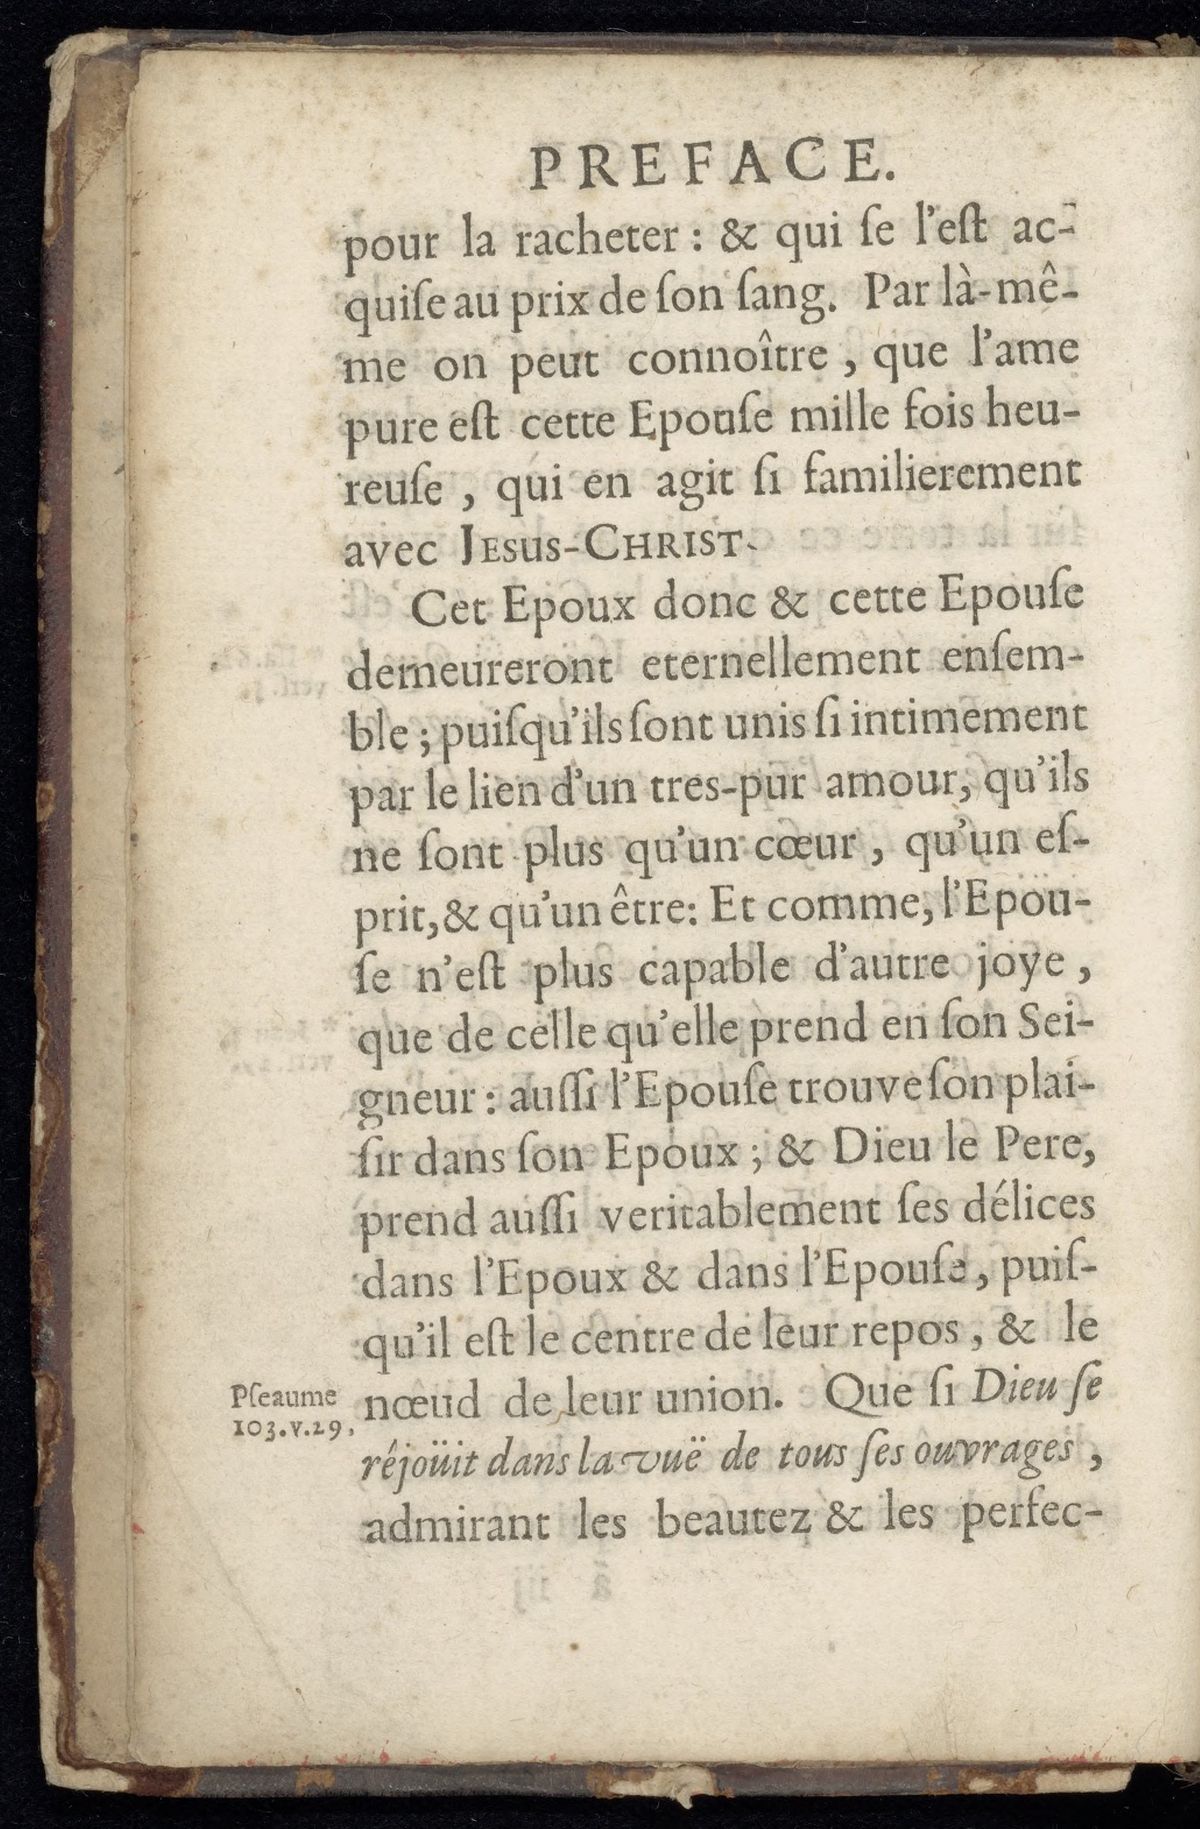 PREFACE.
pour la racheter : & qui ſe l'eſt ac-
quiſe au prix de ſon ſang. Par là-mê-
me on peut connoître, que l'ame
pure eſt cette Epouſe mille fois heu-
reuſe, qui en agit ſi familierement
avec JESUS-CHRIST.
Cet Epoux donc & cette Epouſe
demeureront eternellement enſem-
ble ; puiſqu'ils ſont unis ſi intimement
par le lien d'un tres-pur amour, qu'ils
ne ſont plus qu'un cœur, qu'un eſ-
prit, & qu'un être: Et comme, l'Epou-
ſe n'eſt plus capable d'autre joye,
que de celle qu'elle prend en ſon Sei-
gneur : auſſi l'Epouſe trouve ſon plai-
ſir dans ſon Epoux ; & Dieu le Pere,
prend auſſi veritablement ſes délices
dans l'Epoux & dans l'Epouſe, puiſ-
qu'il eſt le centre de leur repos, & le
Pſeaume
103.v.29.
nœud de leur union. Que ſi Dieu ſe
réjoüit dans la vuë de tous ſes ouvrages,
admirant les beautez & les perfec-